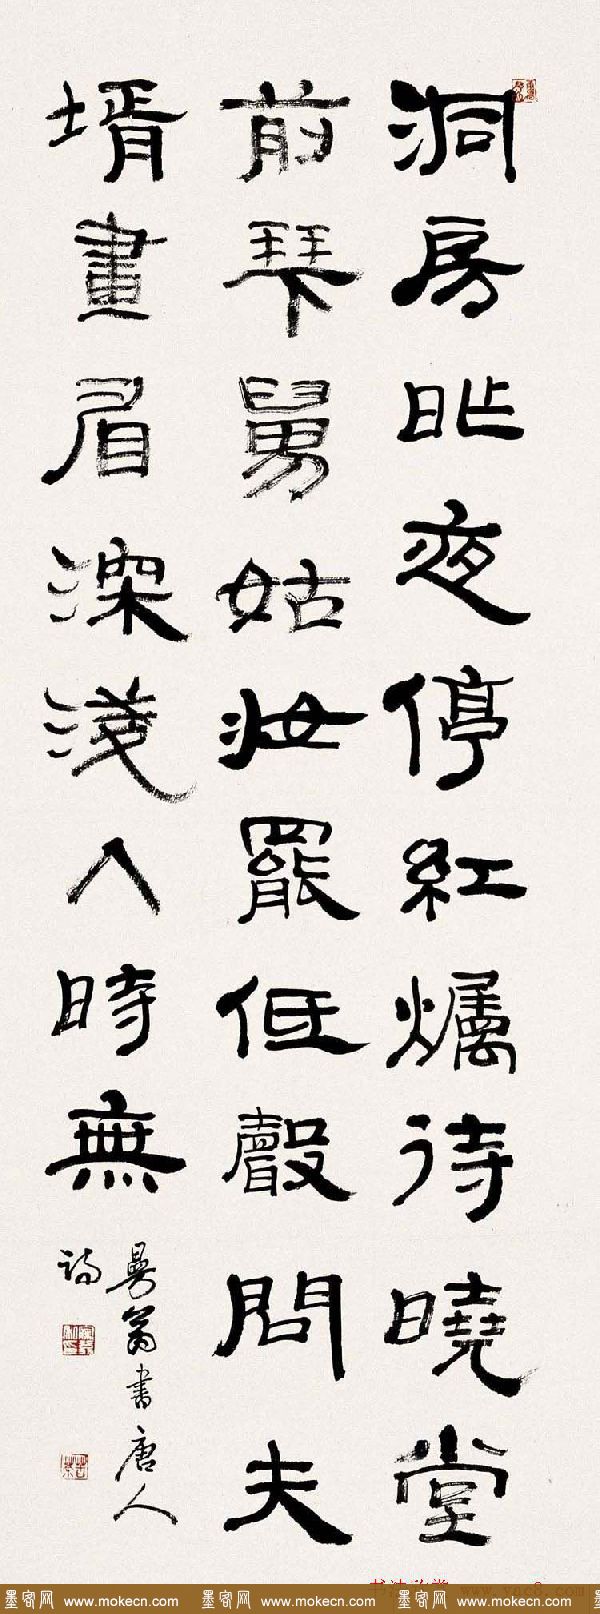 洞房昨夜停紅爥待曉堂
前拜舅姑妝罷低聲問夫
壻畫眉深淺入時無
曼翁書唐人
詩
www.yac8.com
墨客网 www.mokecn.com 墨客网 www.mokecn.com 墨客网 www.mokecn.com